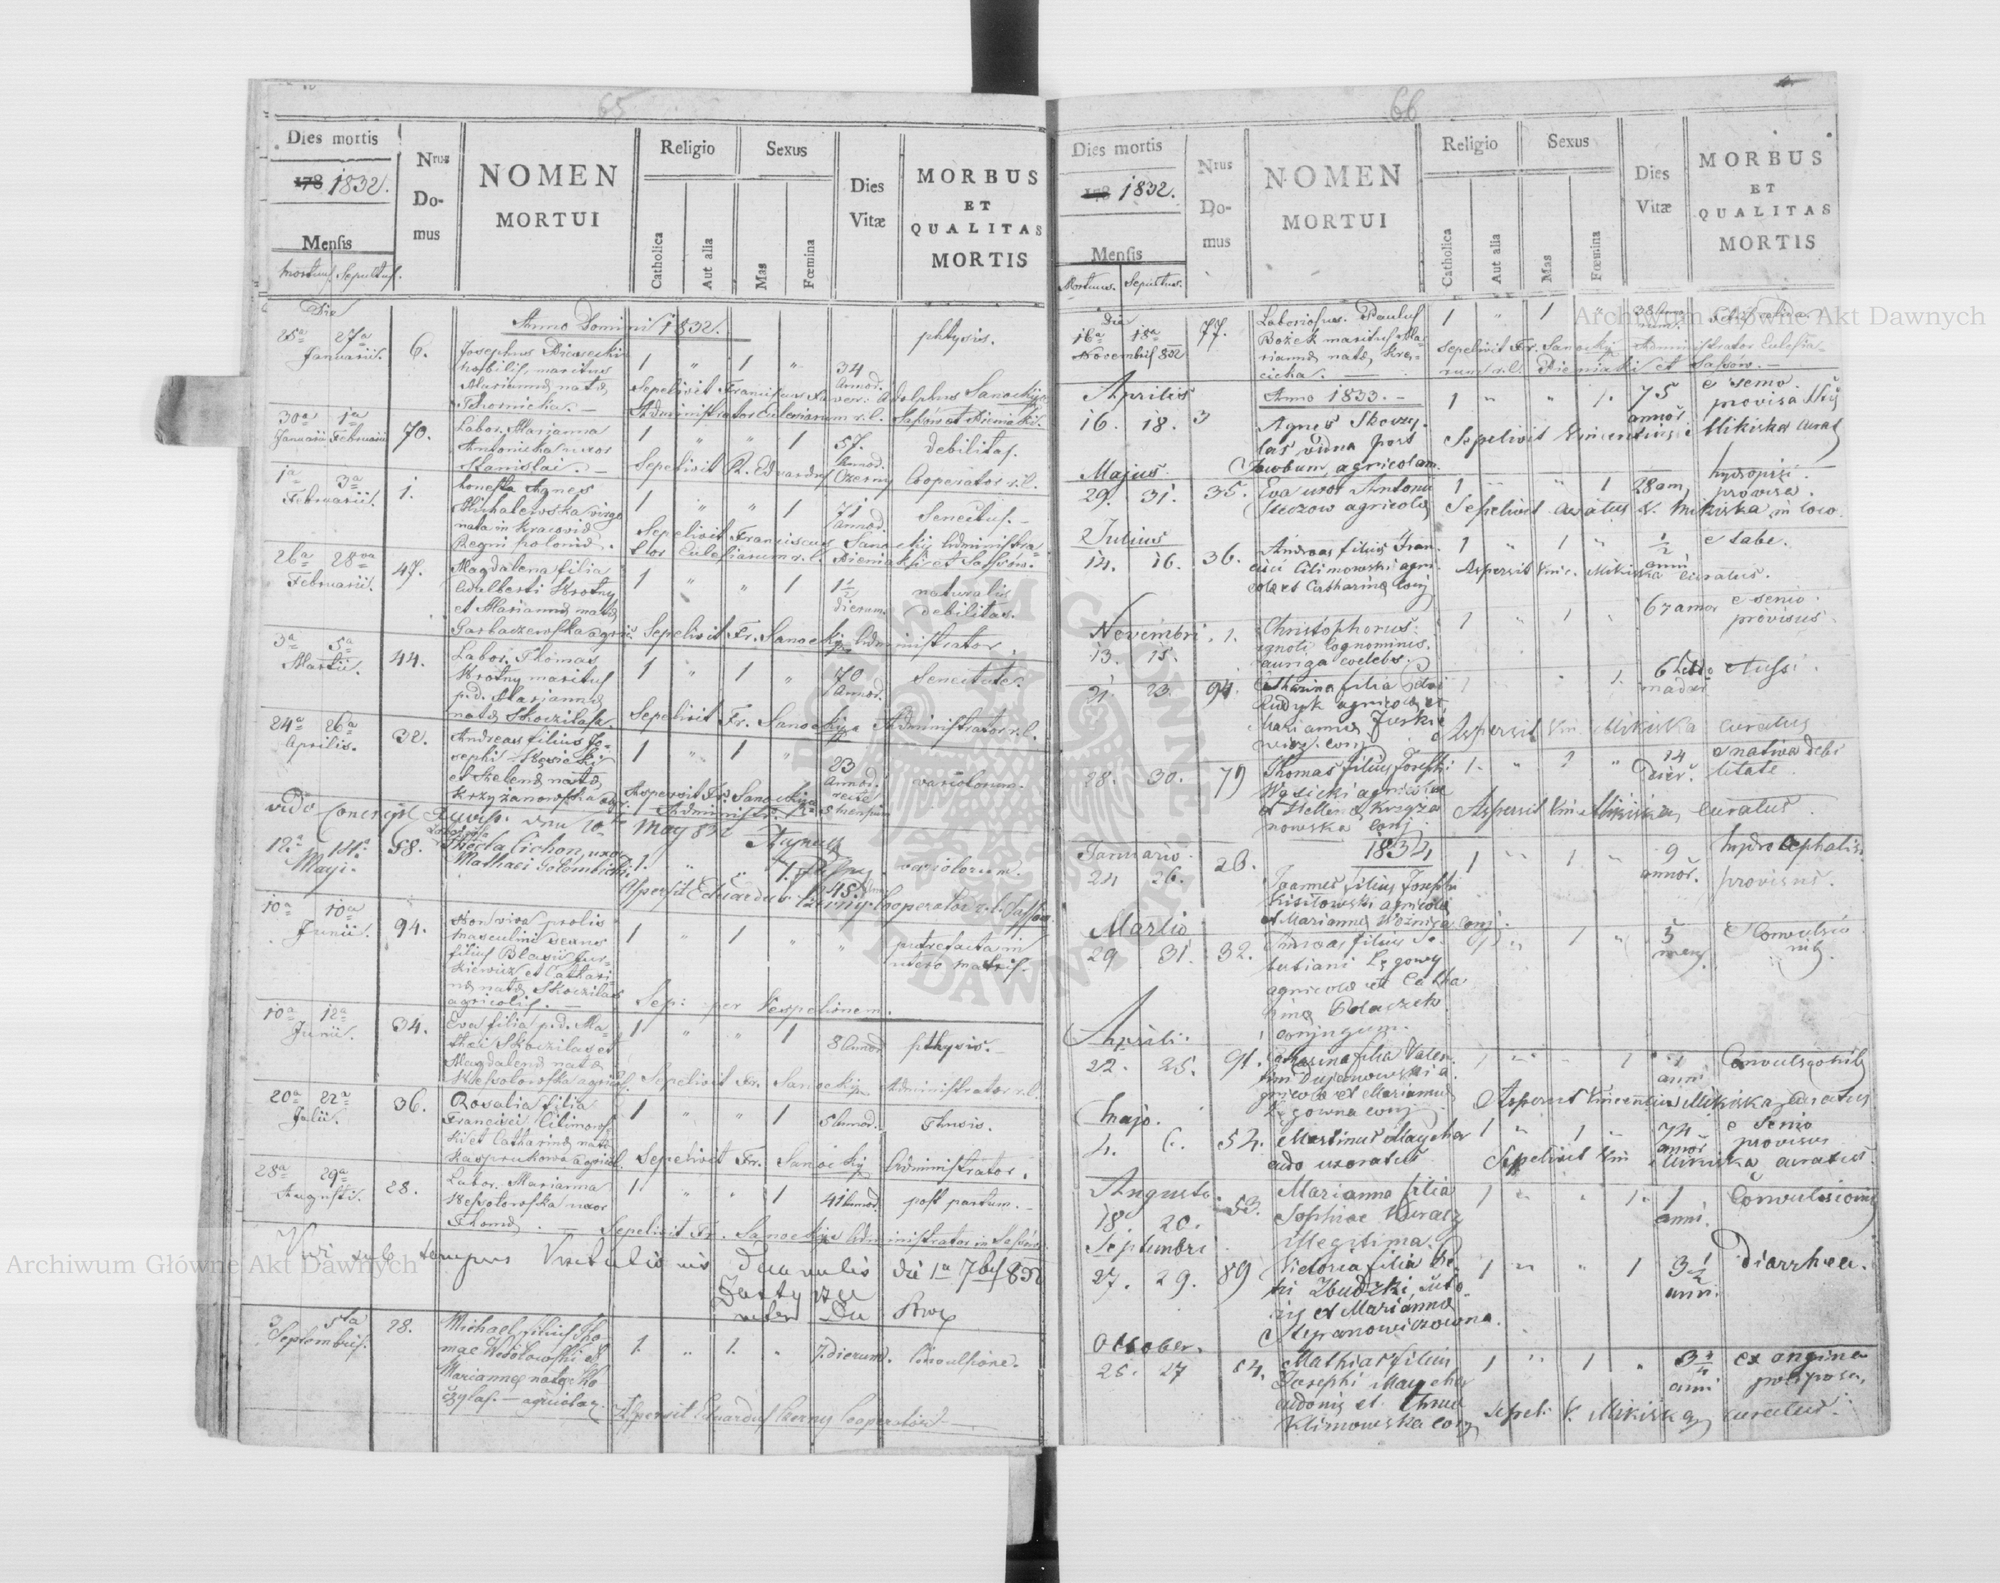 65
Dies mortis
178 1832.
Mensis
mortuus Sepultus.
Nrus
Do-
mus
NOMEN
MORTUI
Religio
Catholica
Aut alia
Sexus
Mas
Fœmina
Dies
Vitæ
MORBUS
ET
QUALITAS
MORTIS
Die
Anno Domini 1832.
25a 27a
Januarii.
6.
Josephus
nobilis, maritus
Mariannæ natæ
1 " 1 "
34
Annor.
phtysis.
Sepelivit Franciscus Xaver: Adolphus Sanocki
Administrator Ecclesiarum r.l. Sassów et Pieniaki.
30a 1a
Januarii Februarii
70.
Labor. Marianna
uxor
Stanislai. —
1 " " 1
57.
Annor.
debilitas.
Sepelivit R. Eduardus Czerny Cooperator r.l.
1a 3a
Februarii.
1.
honesta Agnes
Michalewska virgo
nata in Kracovia
Regni Poloniæ.
1 " " 1
71
Annor.
Senectus. —
Sepelivit Franciscus Sanocki, Administra-
tor Ecclesiarum r.l. Pieniaki et Sassów.
26a 28va
Februarii.
47.
Magdalena filia
Adalberti Krotny
et Mariannæ natæ
Garbaczewska agric.
1 " " 1
1½
dierum
naturalis
debilitas.
Sepelivit Fr. Sanocki Administrator.
3a 5a
Martii.
44.
Labor. Thomas
Krotny maritus
p.d. Mariannæ
natæ Skoczilasa.
1 " 1 "
70
Annor.
Senectute.
Sepelivit Fr. Sanocki Administrator r.l.
24a 26a
Aprilis.
32.
Andreas filius Jo-
sephi
et Helenæ natæ
Krzyżanowska agr.
1 " 1 "
23
Annor.
variolorum.
Aspersit Fr. Sanocki
Administr.
May 832
12a 14a
Maji.
58.
Thecla Cichon, uxor
Mathaei
1. " " 1.
45.
variolorum.
Aspersit Eduardus Czerny Cooperator r.l. Sassow.
10a 10a
Junii.
94.
Non viva prolis
masculini sexus
filius Blasii Jur-
kiewicz et Cathari-
næ natæ Skoczilas
agricolis.
1 " 1 " "
putrefacta in
utero matris.
Sep: per Vespelionem.
10a 12a
Junii.
34.
Eva filia p.d. Ma-
thæi Skoczilas et
Magdalenæ natæ
Wessołowska agric.
1 " " 1
8 Annor
pthysis. —
Sepelivit Fr. Sanocki Administrator r.l.
20a 22a
Julii.
36.
Rosalia filia
Francisci Climows-
ki et Catharinæ natæ
Kasprukowa agricol.
1 " " 1
5 Annor.
Thusis.
Sepelivit Fr. Sanocki Administrator.
28a 29a
Augusti.
28.
Labor. Marianna
Wessołowska uxor
Thomæ. —
1 " " 1
41 Annor.
post partum. —
Sepelivit Fr. Sanocki Administrator in Sassów.
Vidi sub tempus Visitationis die 1a 7bris 832
3 5ta
Septembris.
28.
Michael filius Tho-
mae Wesołowski et
Mariannæ natæ Sko
czylas. — agricolar.
1. " 1. "
7 dierum.
Convulsione.
Aspersit Eduardus Czerny Cooperator. —
66
Dies mortis
178 1832.
Mensis
Mortuus. Sepultus.
Nrus
Do-
mus
NOMEN
MORTUI
Religio
Catholica
Aut alia
Sexus
Mas
Fœmina
Dies
Vitæ
MORBUS
ET
QUALITAS
MORTIS
die
16a 18a
Novembris 832
77.
Laboriosus. Paulus
Bożek maritus Ma-
riannæ natæ Kra-
cicka. —
1 " 1 "
Sepelivit Fr. Sanocki Administrator Ecclesia-
rum r.l. Pieniaki et Sassów. —
Anno 1833. —
Aprilis
16. 18. 3
Agnes Skoczy
las vidua post
Jacobum agricolam.
1 " " 1.
75
annor.
e senio.
provisa
Sepelivit Vincentius Mikiska curat
Majus.
29. 31. 35.
Eva uxor Antonii
Steczow agricolæ
1 " " 1
28 an,
hydropisi
provisa.
Sepelivit curatus V. Mikiska in loco.
Julius
14. 16. 36.
Andreas filius Fran
cisci Climowski agri
colæ et Catharinæ conj
1 " 1 "
½
anni
e tabe.
Aspersit Vinc. Mikiska curatus.
Novembri
13. 15. 1.
Christophorus.
ignoti Cognominis.
auriga coelebs.
1 " 1 "
67 annor
e senio.
provisus
21. 23. 94.
Catharina filia
Rudyk agricolæ et
Mariannæ Jurkie
wicz. conj.
1 " " 1.
6 hebdo
madar.
Tussi.
Aspersit Vin. Mikiska curatus
28. 30. 79
Thomas filius Josephi
Wąsicki agricolæ
et Hellenæ Krzyża
nowska conj.
1. " 1 "
14
dier.
e nativa debi
litate.
Aspersit Vin. Mikiska curatus.
1834
Januario.
24 26. 26.
Joannes filius Josephi
Kisilowski agricolæ
et Mariannæ Woźnica conj
1 " 1. "
9
annor.
hydrocephalis.
provisus.
Martio
29 31. 32.
Andreas filius Se-
bastiani Łęgowy
agricolæ et Catha
rinæ Polaczek
conjugum.
1 " 1 "
5
mens.
Convulsio
nib.
Aprili.
22. 25. 91.
Catharina filia Valen
tini Dujanowski a
gricolæ et Mariannæ
Łęgowna conj
1 " " 1
1
anni
Convulsionib
Aspersit Vincentius Mikiska Curatus
Majo.
4. 6. 54.
Martinus Maycher
aedo uxoratus
1 " 1 "
74
annor
e Senio
provisus
Sepelivit Vin Mikiska curatus.
Augusto
18. 20. 53.
Marianna filia
Sophiae Kuracz
illegitima.
1 " " 1.
1
anni.
Convulsionib
Septembri
27. 29. 89
Victoria filia Pe-
tri Zbudzki, suto-
ris et Mariannæ
Stepanowiczowna.
1 " " 1
3½
ann.
Diarrhea.
October.
25. 27 54.
Mathias filius
Josephi Maycher
aedonis et Annæ
Klimowska conj
1 " 1 "
3¾
anni
ex angina
poliposa,
Sepeli. V. Mikiska curatus.
Archiwum Główne Akt Dawnych
Archiwum Główne Akt Dawnych
ARCHIWUM GŁÓWNE AKT DAWNYCH